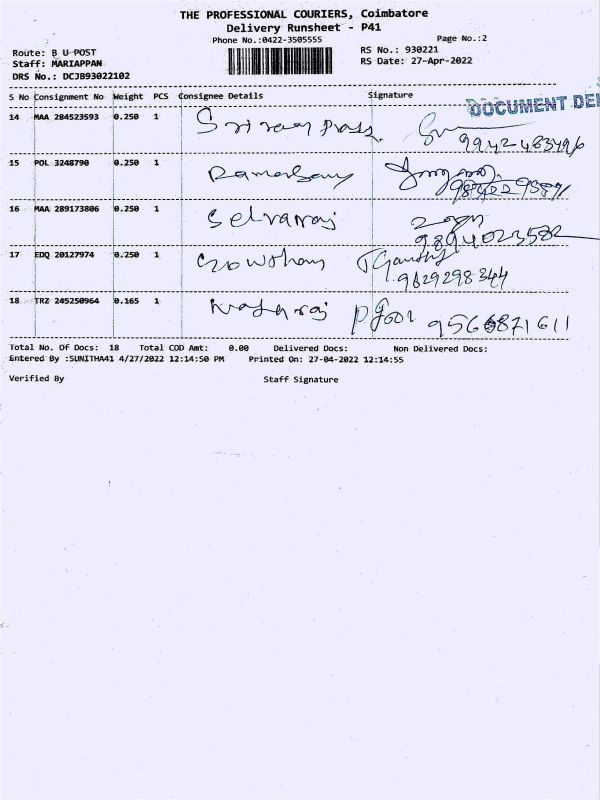 THE PROFESSIONAL COURIERS, Coimbatore
Delivery Runsheet - P41
Phone No.:0422-3505555
Page No.:2
Route: B U POST
RS No.: 930221
Staff: MARIAPPAN
RS Date: 27-Apr-2022
DRS No.: DCJB93022102
S No Consignment No Weight PCS Consignee Details Signature
DOCUMENT DEL
14 MAA 284523593 0.250 1
15 POL 3248790 0.250 1 Ramasamy
16 MAA 289173806 0.250 1 Selvaraj
9894023582
17 EDQ 20127974 0.250 1 Gowtham
9629298344
18 TRZ 245250964 0.165 1 Nataraj 9566871611
Total No. Of Docs: 18 Total COD Amt: 0.00 Delivered Docs: Non Delivered Docs:
Entered By :SUNITHA41 4/27/2022 12:14:50 PM Printed On: 27-04-2022 12:14:55
Verified By Staff Signature